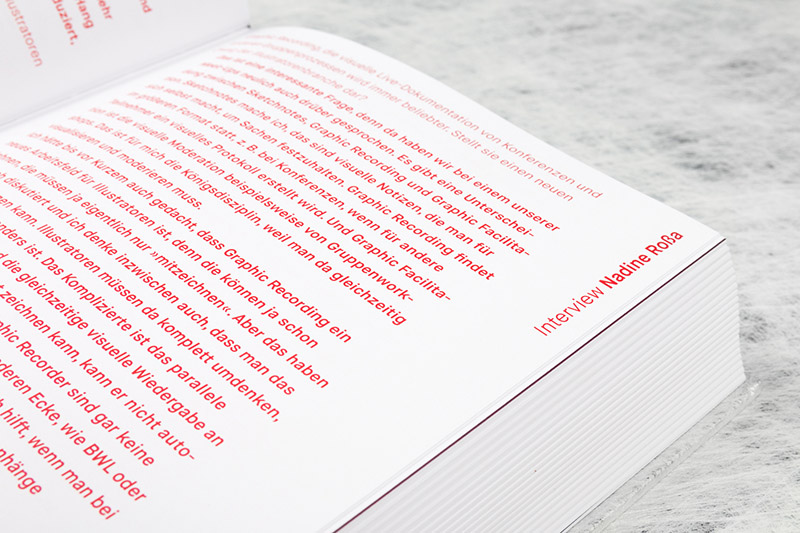 nd
ehr
Hang
duziert,
ustratoren
recording, die visuelle Live-Dokumentation von Konferenzen und
wird immer beliebter. Stellt sie einen neuen
dar?
ist eine interessante Frage, denn da haben wir bei einem unserer
neulich auch drüber gesprochen. Es gibt eine Unterschei-
zwischen Sketchnotes, Graphic Recording und Graphic Facilita-
Sketchnotes mache ich, das sind visuelle Notizen, die man für
sich selbst macht, um Sachen festzuhalten. Graphic Recording findet
in größeren Format statt, z. B. bei Konferenzen, wenn für andere
Teilnehmer ein visuelles Protokoll erstellt wird. Und Graphic Facilita-
ist die visuelle Moderation beispielsweise von Gruppenwork-
shops. Das ist für mich die Königsdisziplin, weil man da gleichzeitig
visualisieren und moderieren muss.
Ich hätte bis vor Kurzem auch gedacht, dass Graphic Recording ein
neues Arbeitsfeld für Illustratoren ist, denn die können ja schon
die müssen ja eigentlich nur »mitzeichnen«. Aber das haben
diskutiert und ich denke inzwischen auch, dass man das
kann. Illustratoren müssen da komplett umdenken,
anders ist. Das Komplizierte ist das parallele
d die gleichzeitige visuelle Wiedergabe an
t zeichnen kann, kann er nicht auto-
aphic Recorder sind gar keine
nderen Ecke, wie BWL oder
h hilft, wenn man bei
nhänge
Interview Nadine Roßa